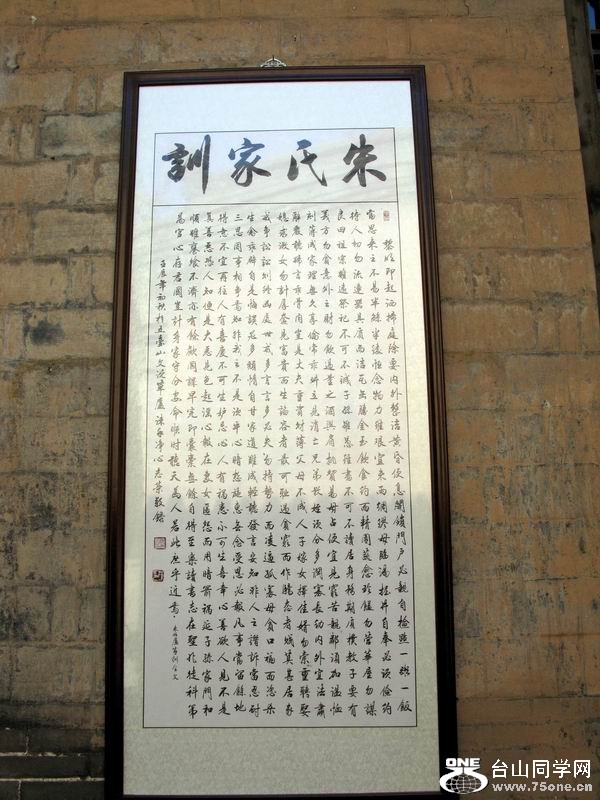 朱氏家訓
黎明即起洒掃庭除要内外整洁黄昏便息關鎖門户必親自檢點一粥一飯
當思來之不易半絲半縷恒念物力维艱宜未雨綢繆毋臨渴掘井自奉必須儉约
待人切勿流連器具質而洁瓦缶勝金玉飲食约而精園蔬愈珍饈勿營華屋勿謀
良田祖宗雖遠祭祀不可不诚子孫雖愚经書不可不讀居身務期質樸教子要有
義方勿貪意外之財勿飲過量之酒與肩挑貿易毋占便宜見窮苦親鄰須加温恤
刻薄成家理無久享倫常乖舛立見消亡兄弟叔姪須分多潤寡長幼内外宜法肅
辭嚴聽婦言乖骨肉豈是丈夫重資財薄父母不成人子嫁女擇佳婿勿索重聘娶
媳求淑女勿計厚奩見富貴而生諂容者最可耻遇貧窮而作驕态者贱莫甚居家
戒争訟訟則終凶處世戒多言言多必失勿恃勢力而凌逼孤寡毋貪口福而恣杀
生禽乖僻自是悔誤必多頹惰自甘家道難成輕聽發言安知非人之譖訴當忍耐
三思因事相争焉知非我之不是須平心暗想施惠無念受恩必報凡事當留餘地
得意不宜再往人有喜慶不可生妒忌心人有禍患不可生喜幸心善欲人見不是
真善恶恐人知便是大恶見色起淫心報在妻女匿怨而用暗箭禍延子孫家門和
順雖饔飧不濟亦有餘歡國課早完即囊橐無餘自得至樂讀書志在聖賢徒科第
爲官心存君國豈計身家守分安命順时聽天爲人若此庶乎近焉·朱柏盧家訓全文
壬辰年初秋於五臺山文 敬錄
ONE
台山同学网
www.75one.cn